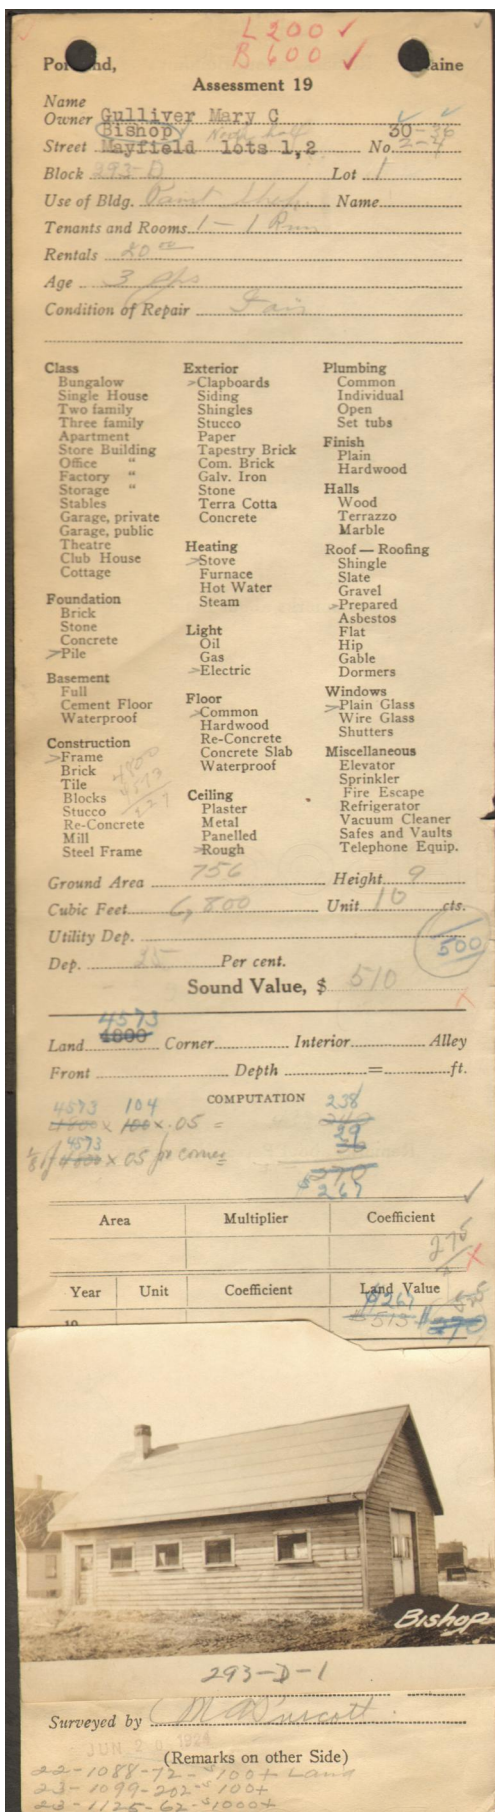 L 200 ✓
B 600 ✓
Portland, Maine
Assessment 19
Name
Owner Gulliver Mary C
Bishop North half 30-36
Street Mayfield lots 1,2 No. 2-4
Block 293-D Lot 1
Use of Bldg. Paint Shop Name
Tenants and Rooms 1 - 1 Rm
Rentals 20 00
Age 3 yrs
Condition of Repair Fair
Class
Bungalow
Single House
Two family
Three family
Apartment
Store Building
Office "
Factory "
Storage "
Stables
Garage, private
Garage, public
Theatre
Club House
Cottage
Foundation
Brick
Stone
Concrete
>Pile
Basement
Full
Cement Floor
Waterproof
Construction
>Frame
Brick
Tile
Blocks
Stucco
Re-Concrete
Mill
Steel Frame
4800
4573
227
Exterior
>Clapboards
Siding
Shingles
Stucco
Paper
Tapestry Brick
Com. Brick
Galv. Iron
Stone
Terra Cotta
Concrete
Heating
>Stove
Furnace
Hot Water
Steam
Light
Oil
Gas
>Electric
Floor
>Common
Hardwood
Re-Concrete
Concrete Slab
Waterproof
Ceiling
Plaster
Metal
Panelled
>Rough
Plumbing
Common
Individual
Open
Set tubs
Finish
Plain
Hardwood
Halls
Wood
Terrazzo
Marble
Roof — Roofing
Shingle
Slate
Gravel
>Prepared
Asbestos
Flat
Hip
Gable
Dormers
Windows
>Plain Glass
Wire Glass
Shutters
Miscellaneous
Elevator
Sprinkler
Fire Escape
Refrigerator
Vacuum Cleaner
Safes and Vaults
Telephone Equip.
Ground Area 756 Height 9
Cubic Feet 6,800 Unit 10 cts.
Utility Dep. 500
Dep. 25 Per cent.
Sound Value, $ 510
4573
Land 4800 Corner Interior Alley
Front Depth = ft.
COMPUTATION
4573 104 238
4800 x 100 x .05 = 240
29
4573
1/8 of 4800 x .05 for corner = 30
270
$ 267
Area Multiplier Coefficient
275
Year Unit Coefficient Land Value
$267
$515 $270
19
Bishop
293-D-1
Surveyed by
JUN 20 1924
(Remarks on other Side)
22-1088-72-$100+ Land
23-1099-202-$100+
23-1125-62-$1000+